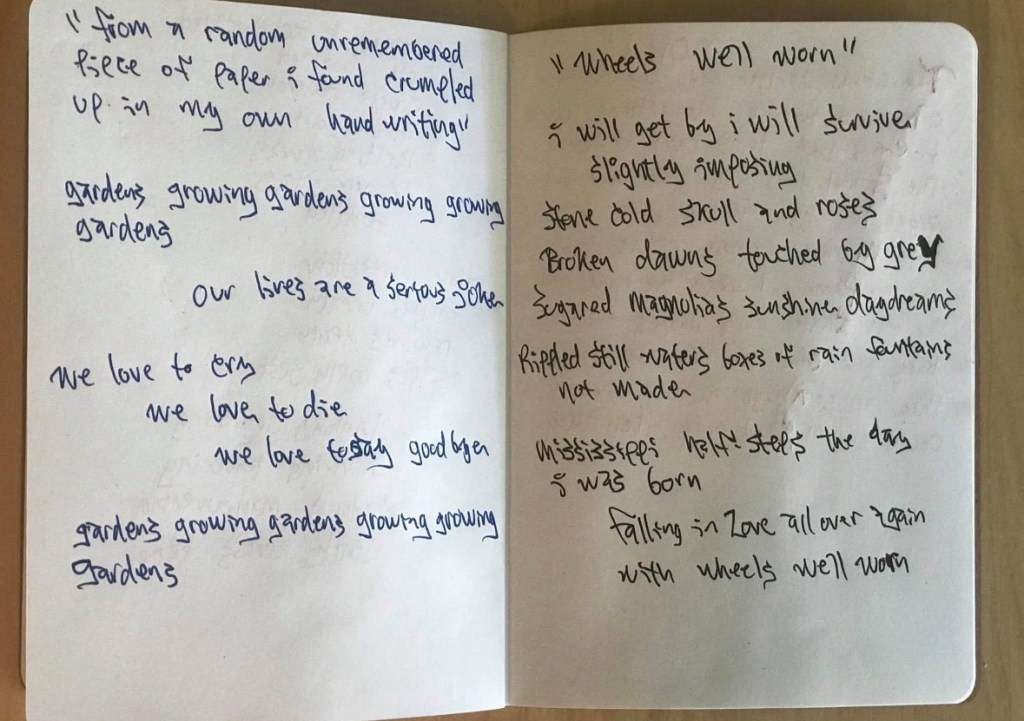 "from a random unremembered
piece of paper i found crumpled
up in my own handwriting"
gardens growing gardens growing growing
gardens
our lives are a serious joke
we love to cry
we love to die
we love to say goodbye
gardens growing gardens growing growing
gardens
"Wheels well worn"
i will get by i will survive
slightly imposing
stone cold skull and roses
Broken dawns touched by grey
sugared magnolias sunshine daydreams
Rippled still waters boxes of rain fountains
not made
mississippi half-steps the day
i was born
falling in love all over again
with wheels well worn